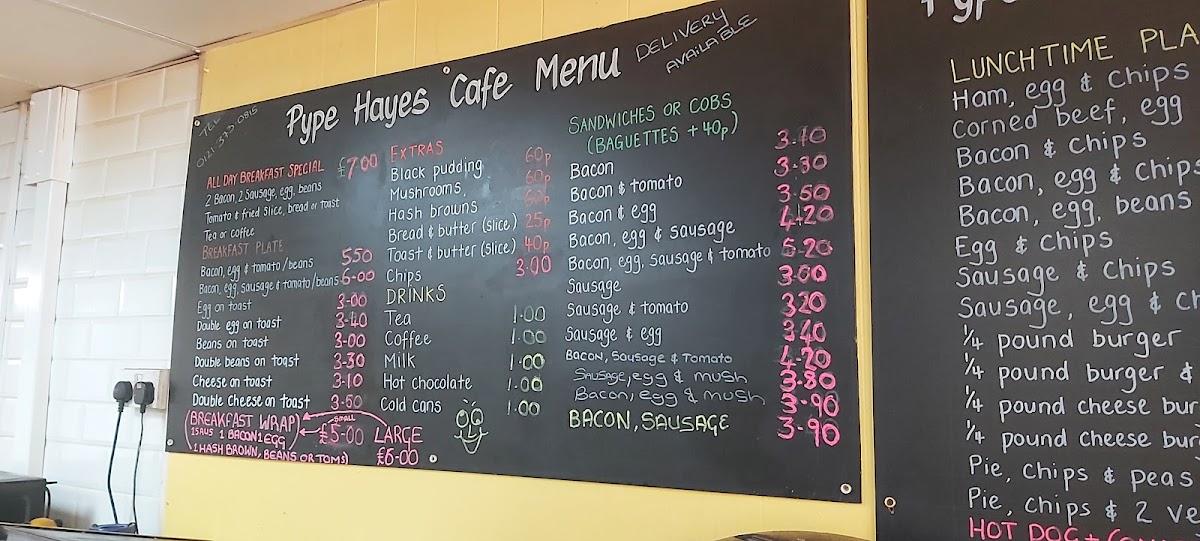 TEL
0121-373-0815
Pype Hayes Cafe Menu
DELIVERY
AVAILABLE
ALL DAY BREAKFAST SPECIAL £7.00
2 Bacon, 2 Sausage, egg, beans
Tomato & fried slice, bread or toast
Tea or coffee
BREAKFAST PLATE
Bacon, egg & tomato/beans 5.50
Bacon, egg, sausage & tomato/beans 6.00
Egg on toast 3.00
Double egg on toast 3.40
Beans on toast 3.00
Double beans on toast 3.30
Cheese on toast 3.10
Double cheese on toast 3.50
(BREAKFAST WRAP)
1 SAUS 1 BACON 1 EGG
1 HASH BROWN, BEANS OR TOMS)
SMALL
£5.00
LARGE
£6.00
EXTRAS
Black pudding 60p
Mushrooms 60p
Hash browns 60p
Bread & butter (slice) 25p
Toast & butter (slice) 40p
Chips 3.00
DRINKS
Tea 1.00
Coffee 1.00
Milk 1.00
Hot chocolate 1.00
Cold cans 1.00
SANDWICHES OR COBS
(BAGUETTES + 40p)
Bacon 3.10
Bacon & tomato 3.30
Bacon & egg 3.50
Bacon, egg & sausage 4.20
Bacon, egg, sausage & tomato 5.20
Sausage 3.00
Sausage & tomato 3.20
Sausage & egg 3.40
BACON, SAUSAGE & TOMATO 4.20
SAUSAGE, egg & mush 3.80
Bacon, egg & mush 3.90
BACON, SAUSAGE 3.90
LUNCHTIME PLA
Ham, egg & Chips
Corned beef, egg
Bacon & Chips
Bacon, egg & Chips
Bacon, egg, beans
Egg & Chips
Sausage & Chips
Sausage, egg & Ch
1/4 pound burger
1/4 pound burger &
1/4 pound cheese bur
1/4 pound cheese bur
Pie, chips & peas
Pie, chips & 2 ve
HOT DOG +